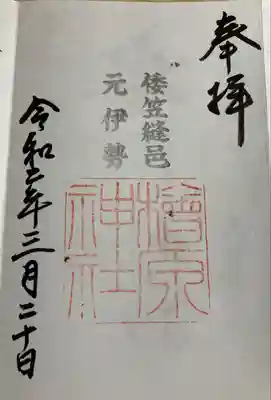 奉拝
倭笠縫邑
元伊勢
檜原
神社
令和二年三月二十日